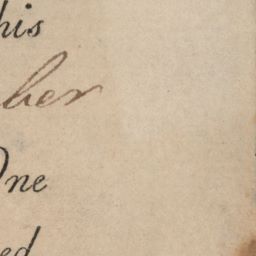 his
ber
One
ed